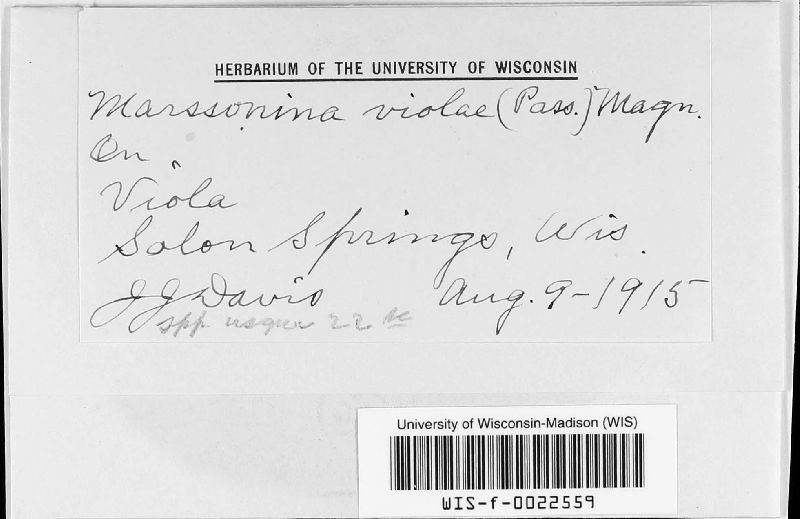 HERBARIUM OF THE UNIVERSITY OF WISCONSIN
Marssonina violae (Pass.) Magn.
On
Viola
Solon Springs, Wis.
JJDavis Aug. 9-1915
spp usque 22
University of Wisconsin-Madison (WIS)
WIS-f-0022559